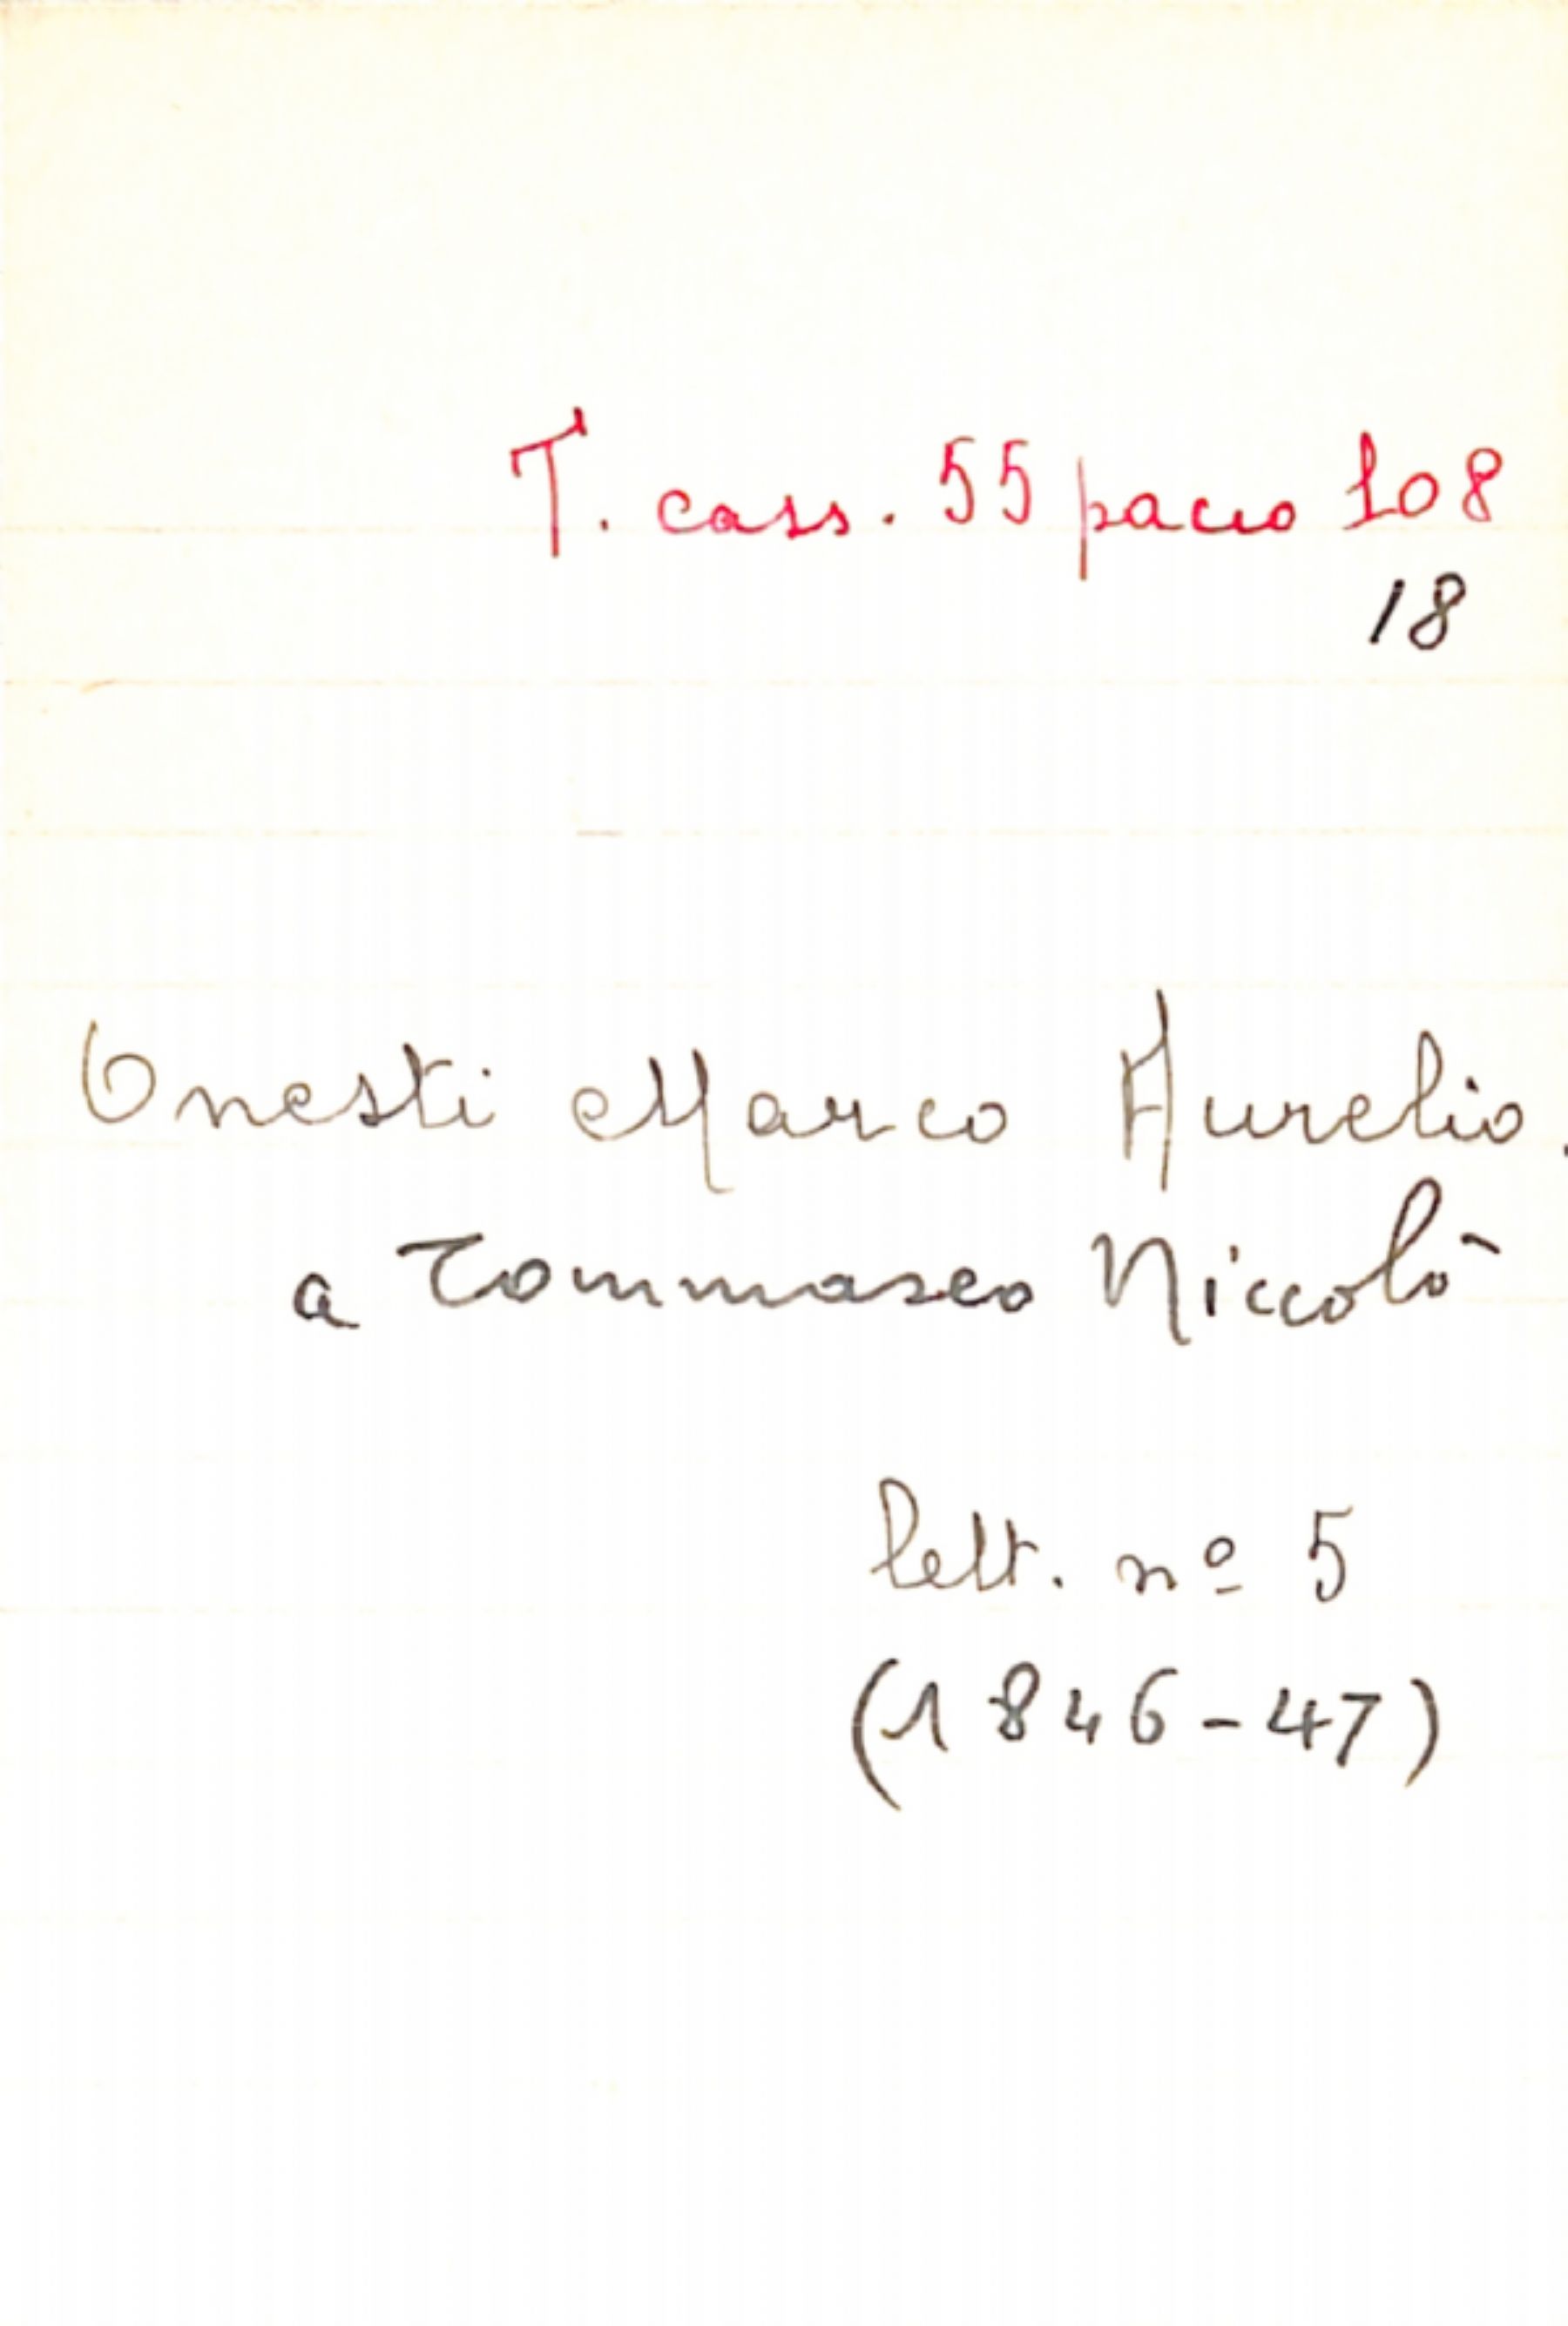 T. cass. 55 pacco 108
18
Onesti Marco Aurelio.
a Tommaseo Niccolò
lett. nº 5
(1846-47)